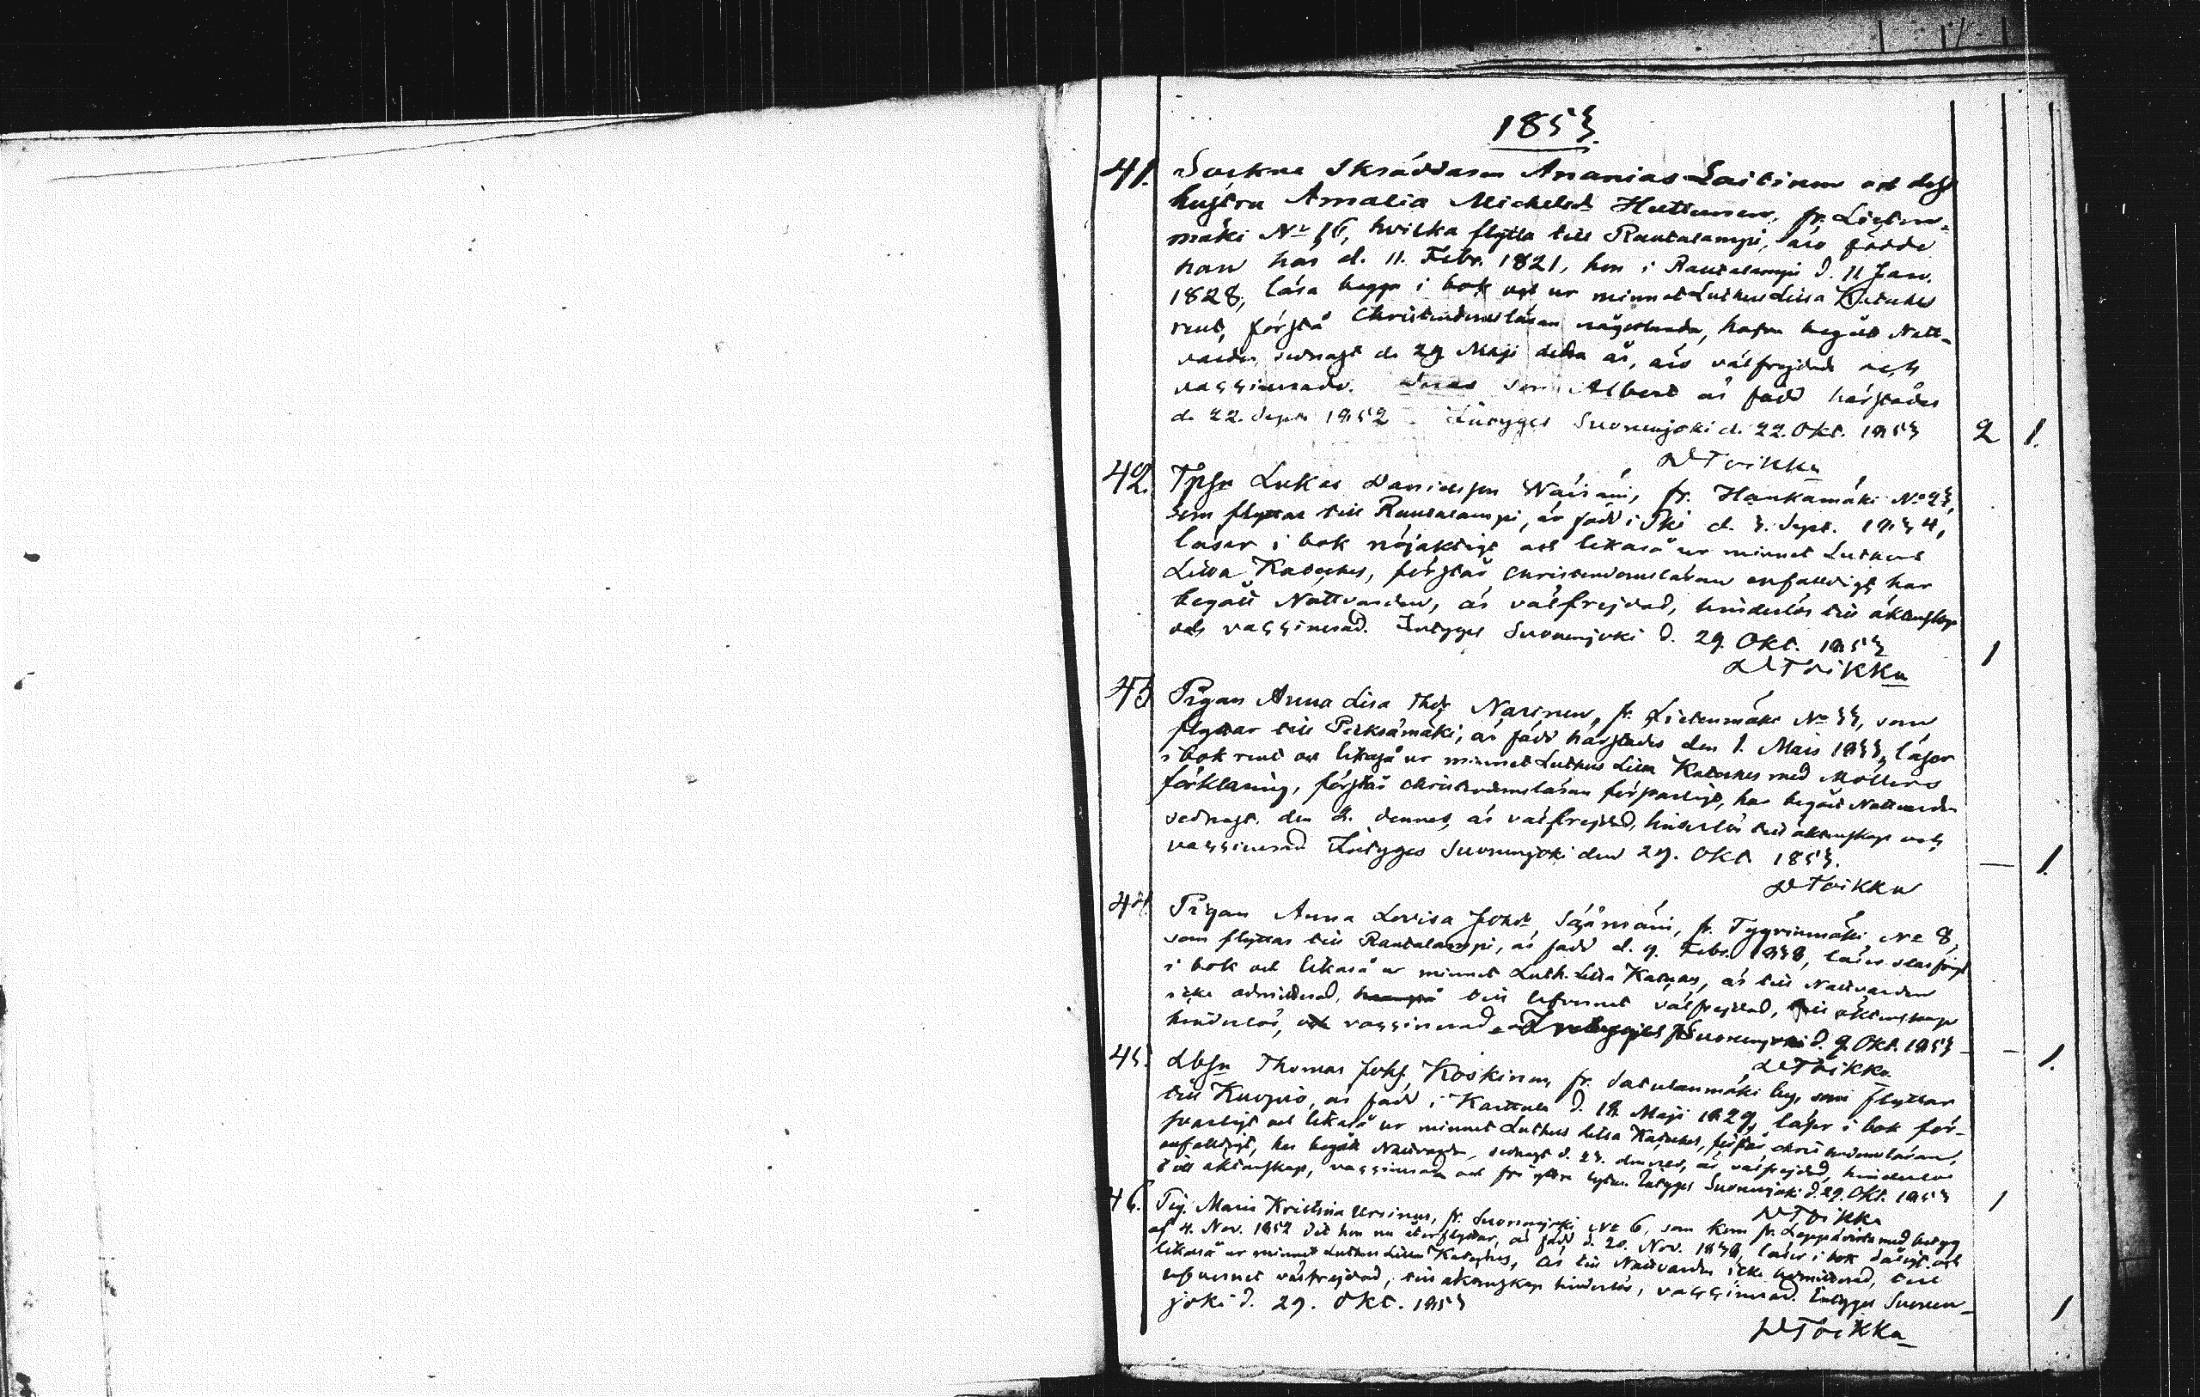 1853.
41. Sockne Skräddaren Ananias Laitinen och dess
hustru Amalia Michelsdr Huttunen, fr. Lieten-
mäki No 16, hvilka flytta till Rautalampi, äro födde
han här d. 11. Febr. 1821, hon i Rautalampi d. 11 Janu.
1828, läsa begge i bok och ur minnet Luthers Lilla Kateches
rent, förstå Christendomsläran någorlunda, hafva begått Natt-
varden sednast d. 29 Maji detta år, äro välfrejdade och
vaccinerade. Deras son Albert är född härstädes
d. 22. Sept. 1852 Intyges Suonenjoki d. 22. Okt. 1853 2 1.
DToikka
42. Lukas Davidsson Wäisäin, fr. Haukamäki No 23,
som flyttar till Rautalampi, är född i d. 3. Sept. 1834,
läser i bok nöjaktigt och likaså ur minnet Luthers
Lilla Kateches, förstår christendomsläran enfaldigt, har
begått Nattvarden, är välfrejdad, hinderlös till äktenskap
och vaccinerad. Intyges Suonenjoki d. 29. Okt. 1853 1
DToikka
43 Pigan Anna Lisa Narinen, fr. Lietenmäki No 33, som
flyttar till Pieksämäki, är född härstädes den 1. Mars 1833, läser
i bok rent och likaså ur minnet Luthers Lilla Kateches med Möllers
förklaring, förstår christendomsläran försvarligt, har begått Nattvarden
sednast den 2. dennes, är välfrejdad, hinderlös till äktenskap och
vaccinerad Intyges Suonenjoki den 29. Okt 1853. — 1.
DToikka
44. Pigan Anna Lovisa Johsd. Säämäin, fr. Tyyrinmäki No 8,
som flyttar till Rautalampi, är född d. 9. Febr. 1838, läser
i bok och likaså ur minnet Luth. Lilla Kateches, är till Nattvarden
icke admitterad, till lefvernet välfrejdad, till äktenskap
hinderlös, och vaccinerad. Intyges Suonenjoki d. 9. Okt. 1853 — 1.
DToikka
45. Thomas Johs. Koskinen, fr. Satulanmäki by, som flyttar
till Kuopio, är född i Karttula d. 18. Maji 1829, läser i bok för-
svarligt och likaså ur minnet Luthers lilla Kateches, förstår christendomsläran
enfaldigt, har begått Nattvarden sednast d. 23. dennes, är välfrejdad, hinderlös
till äktenskap, vaccinerad och fri Intyges Suonenjoki d. 29. Okt. 1853 1
DToikka
46. Pig. Maria Kristina Ursinus, fr. Suonenjoki No 6, som kom fr. Leppävirta med betyg
af 4. Nov. 1852 dit hon nu återflyttar, är född d. 20. Nov. 1838, läser i bok och
likaså ur minnet Luthers Lilla Kateches, är till Nattvarden icke admitterad, till
lefvernet välfrejdad, till äktenskap hinderlös, vaccinerad. Intyges Suonen-
joki d. 29. Okt. 1853 1
DToikka